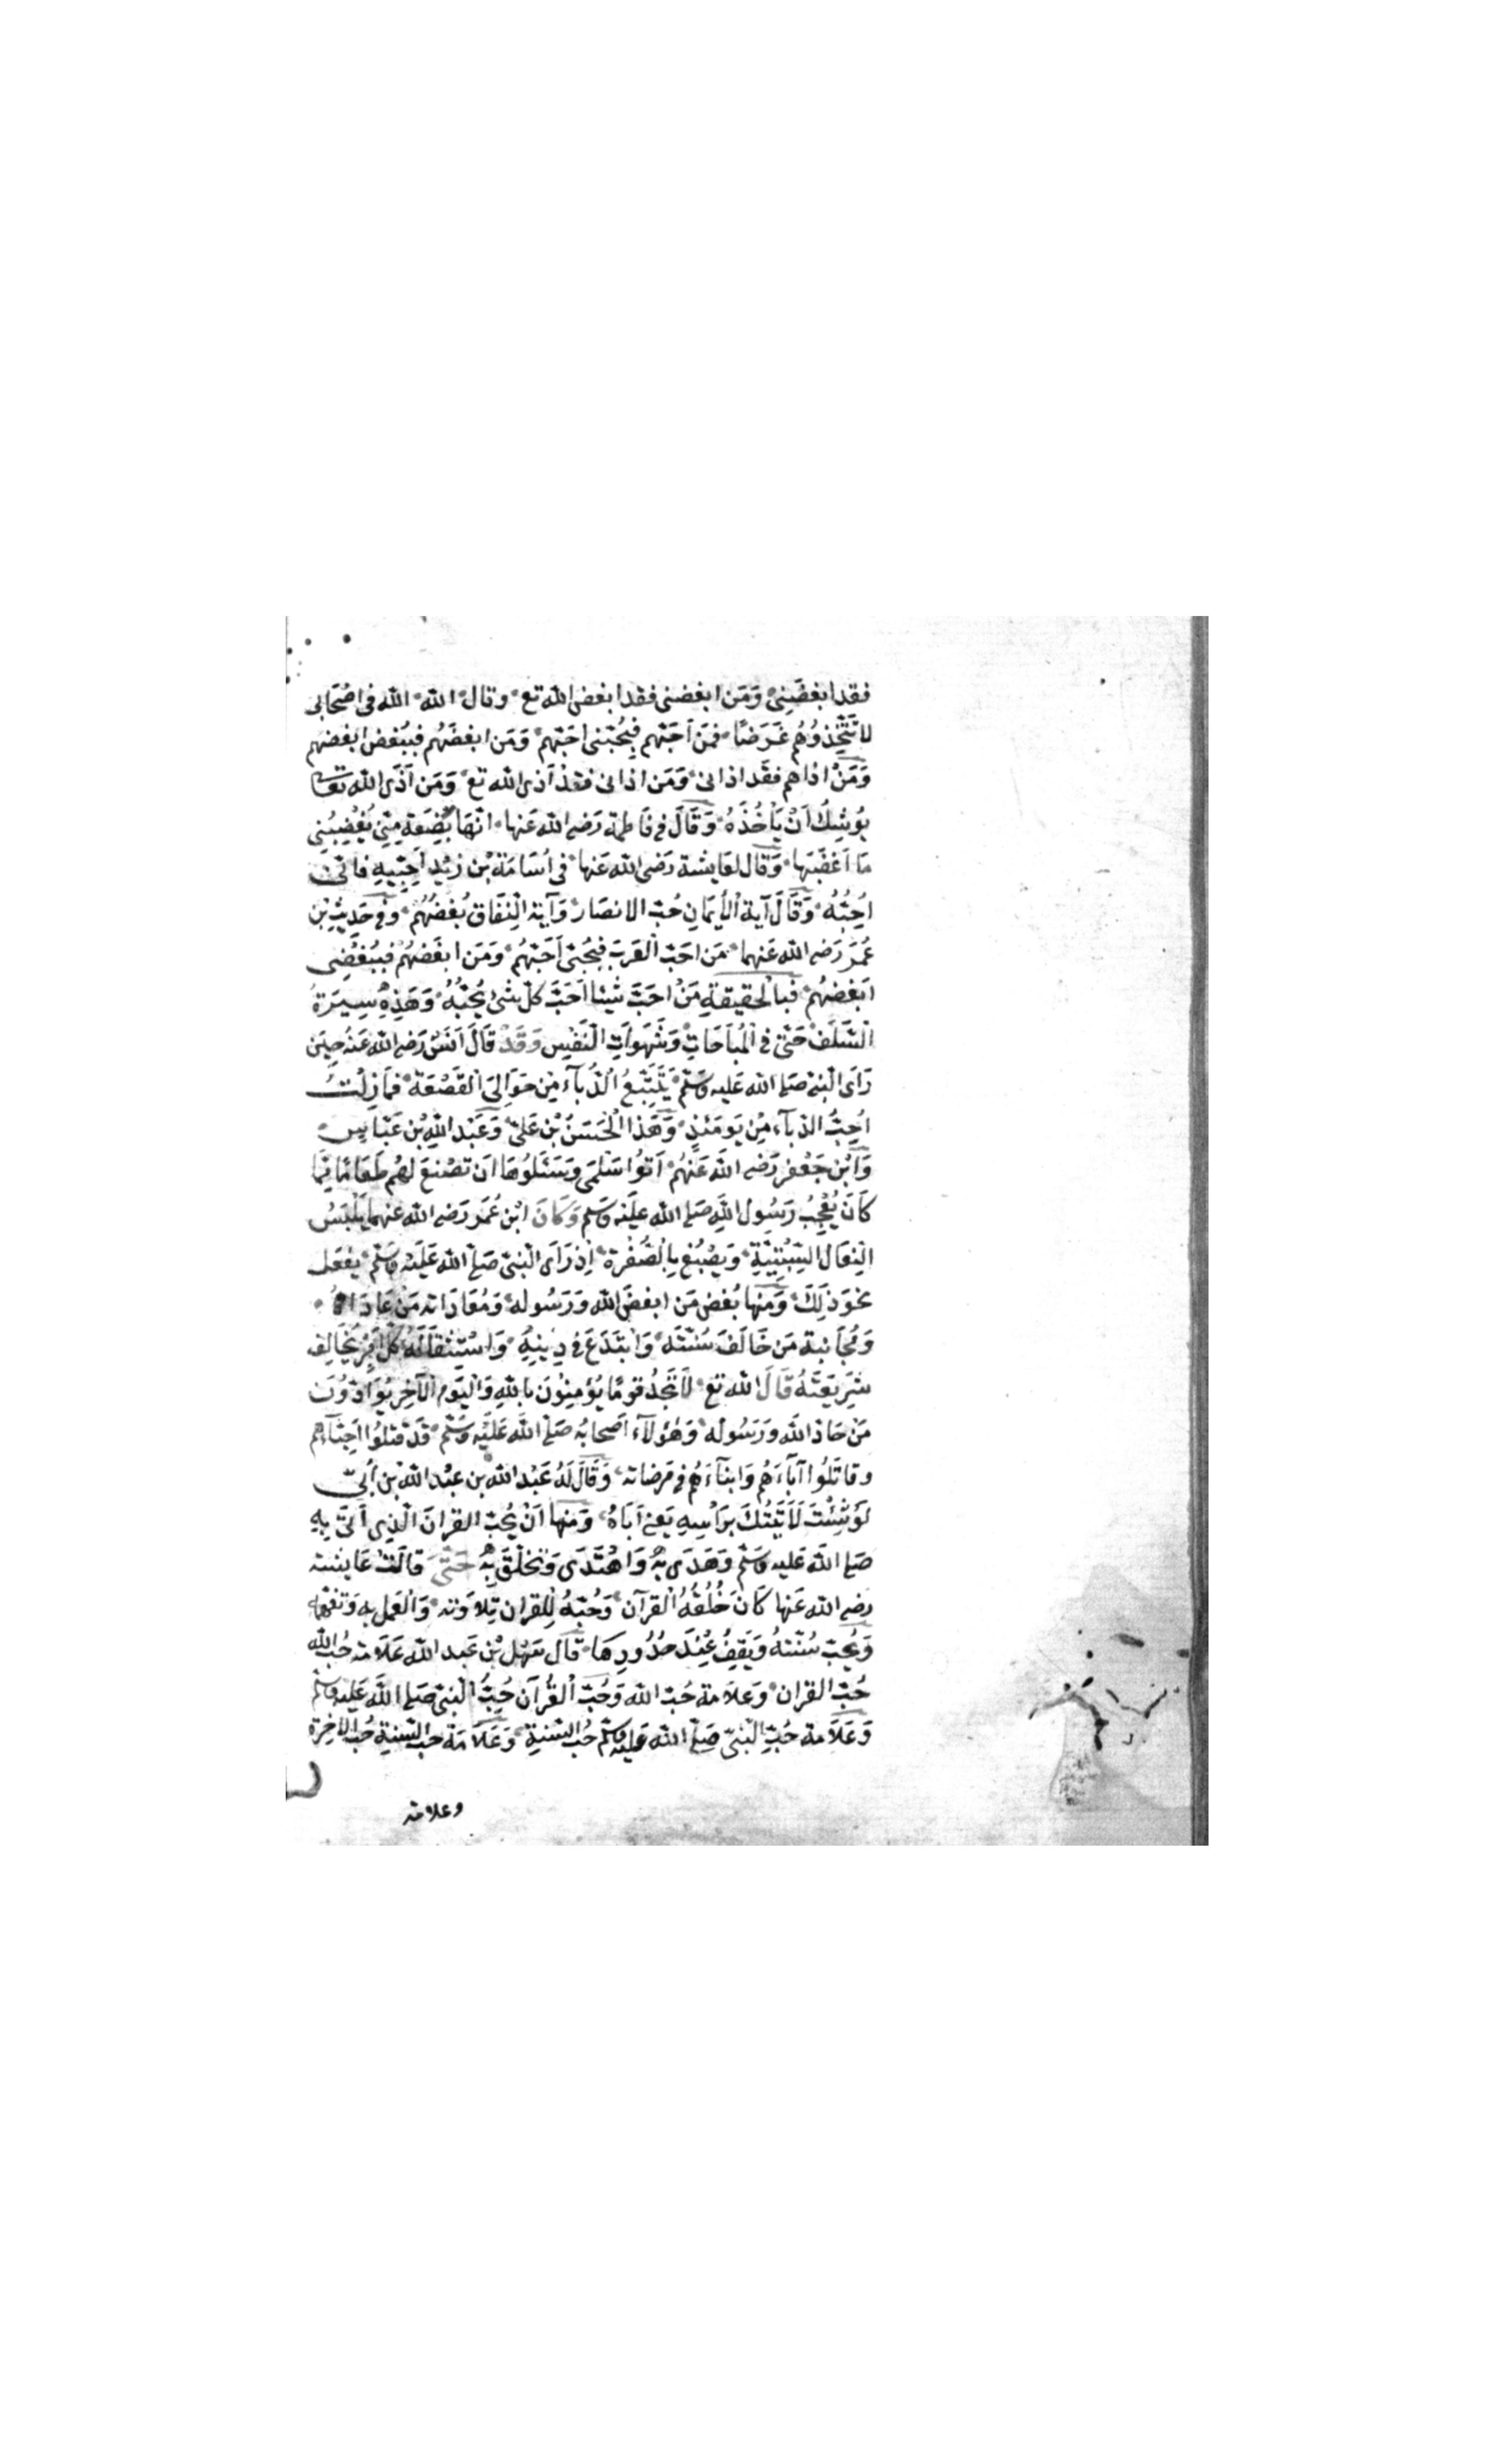 فقد ابغضَنِى وَمَن ابغضنى فقد ابغض الله تع وقال الله الله فى اصْحَابى
لا تَتَّخِذوُهُم غَرَضًا فمَن اَحَبَّهم فبِحُبّى احَبّهم وَمَن ابغضَهُم فببُغضى ابغضهم
وَمَنْ اذاهم فقَد اذانى وَمَن اذانى فقدْ آذى الله تع وَمَن آذَى الله تعَا
يوُشِكُ اَنْ يَأخُذَهُ وَقَالَ فى فَاطمة رَضى الله عَنها انّهَا بَضْعَة مِنّى يُغْضِبُنِى
مَا اَغضَبَهَا وَقَال لعَايشة رَضى الله عَنها فى اُسَامَة بْن زيْد اَحِبِّيهِ فانّى
اُحِبُّهُ وَقَالَ آية اْلأيمَانِ حُبّ الانصَار وَآيَة الِنفَاق بُغْضُهُمْ وَفى حَديث بْن
عُمَرَ رَضى الله عَنهما مَن احَبّ اْلعَرَبَ فبِحُبّى اَحَبّهُم وَمَن ابغَضهُمْ فببُغْضِى
ابَغضهُمْ فبالْحقيقةِ مَنْ احَبّ شْيئا احَبَّ كلّ شئ يُحبّهُ وَهَذِهِ سِيرَةُ
الْسّلَف حَتّى فى اْلمُبَاحَاتِ وَشَهَوَاتِ الْنّفْسِ وَقَدْ قَالَ اَنَسْ رَضى الله عَنهُ حِينَ
رَاَى الْنبىّ صَلى الله عَليه وَسَلّم يَتَتَبَّعُ الدُّبآءَ مِن حَوَالِىَ القَصْعَة فمَا زِلْتُ
اُحِبُّ الدّبآءَ مِن يَومَئذٍ وَهَذا الْحَسَنُ بْن عَلىّ وَعَبْد اللهِ بْن عَبّاسٍ
وَابْن جَعْفر رَضى الله عَنهُم اَتوُا سَلْمى وَسَئَلوُهَا اَن تصْنعَ لهُم طَعَامًا مِمّا
كَانَ يُعْجِبُ رَسُول اللهِ صَلى الله عَليْه وَسَلم وَكَانَ ابْن عُمَر رَضى الله عَنهما يَلْبَسُ
الْنِعَال السّبْتِيّةِ وَيَصْبُغ بِالْصّفْرة اِذ رَاَى الْنبىّ صَلىّ الله عَليْه وَسَلّم يفعَل
نحْوَ ذلِكَ وَمنها بُغض مَن ابغضَ الله وَرَسُوله وَمُعَادَاته مَن عَادَاهُ
وَمُجَانبة مَن خَالَفَ سُنّتَه وَابْتَدَعَ فى دِينِهِ وَاسْتِثقَالهُ كلّ اَمْرٍ يُخَالِف
شَرِيعَتَهُ قَالَ الله تع لَا تَجِدُ قومًا يُؤمِنُونَ باللهِ وَاليَوم الْآخِرِ يُوَادّوُنَ
مَن حَادّ الله وَرَسُوله وَهٰؤلآء اَصحابُه صَلىّ اللهُ عَليْه وَسَلّم قَدْ قتلوُا اَحِبّآءَهُم
وقاتلُوا آبآءَهُم وَابنآءَهُم فى مَرضاته وَقَالَ لَهُ عَبْد الله بن عبْد الله بْن اُبىّ
لَوْ شِئْتَ لَاَتَيْتُكَ بِرَاْسِهِ يَعنِى اَبَاهُ وَمنهَا اَنْ يُحِبّ القرانَ الّذِى اَتَى بِهِ
صَلى الله عَليه وَسَلّم وَهَدَى بهِ وَاهْتَدَى وَتَخَلّقَ بِهِ حَتّى قالَتْ عَايشة
رضى الله عَنها كَانَ خُلُقُهُ اْلقرآنَ وَحُبّهُ لِلقران تِلاوَته وَالْعَمل بهِ وَتفهّمه
وَيُحِبّ سُنّتهُ وَيَقِفُ عِنْدَ حُدُودِهَا قَال سَهْل بْن عَبد الله عَلَامَة حُبّ الله
حُبّ القران وَعَلامَة حُبّ الله وَحُبّ الْقُرآن حُبُّ النبىّ صَلى الله عَليه وَسَلّم
وَعَلَامة حُبّ النّبىّ صَلىّ الله عَليه وَسَلّم حُبّ السّنةِ وَعَلَامَة حبّ السّنة حُبّ الآخِرة
وعلامة